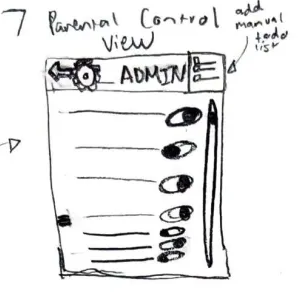 7 Parental Control
View
add
manual
todo
list
ADMIN